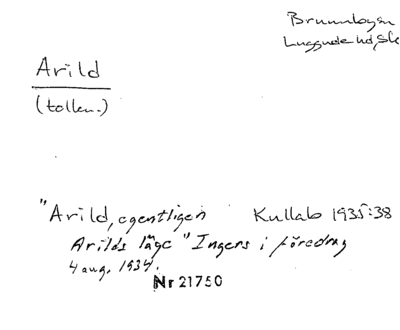 Brunnby sn
Luggude hd, Sk
Arild
(tolkn.)
"Arild, egentligen Kullab 1935:38
Arilds läge" Ingers i föredrag
4 aug. 1934.
Nr 21750